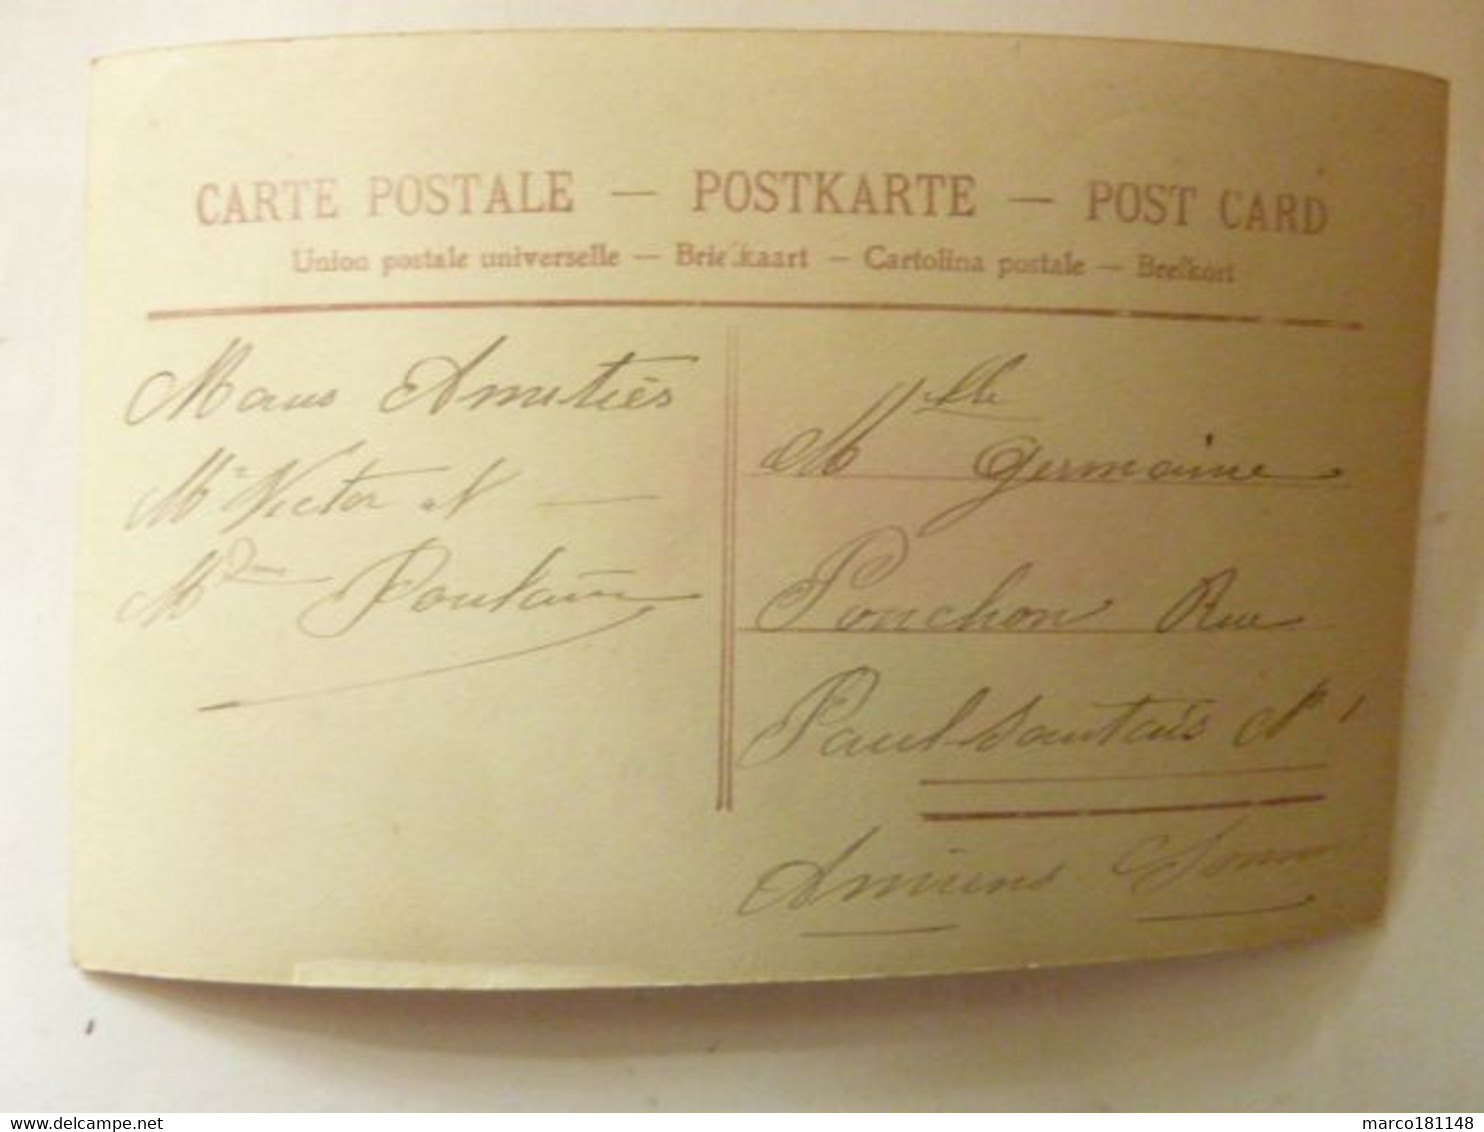 CARTE POSTALE — POSTKARTE — POST CARD
Union postale universelle — Briefkaart — Cartolina postale — Brefkort
Amitiés
Mr Victor et
Mdme
Mlle
Germaine
Ponchon Rue
Paul
Amiens Somme
marco181148